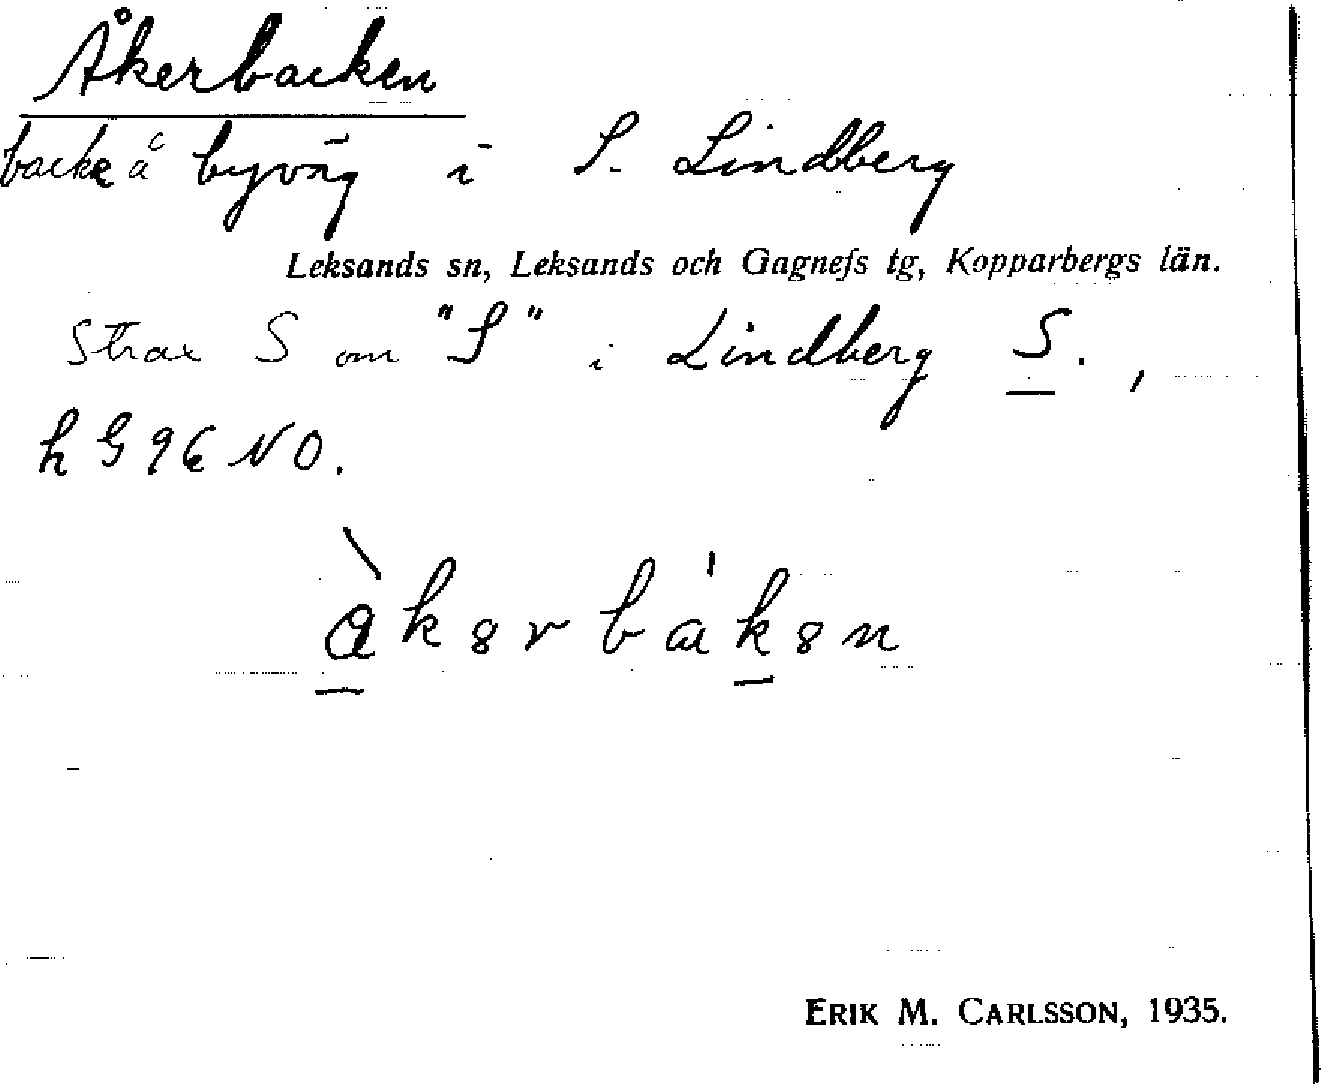 Åkerbacken
backe å byväg i S. Lindberg
Leksands sn, Leksands och Gagnefs tg, Kopparbergs län.
Strax S om "S" i Lindberg S.,
h G 9 6 NO.
ERIK M. CARLSSON, 1935.